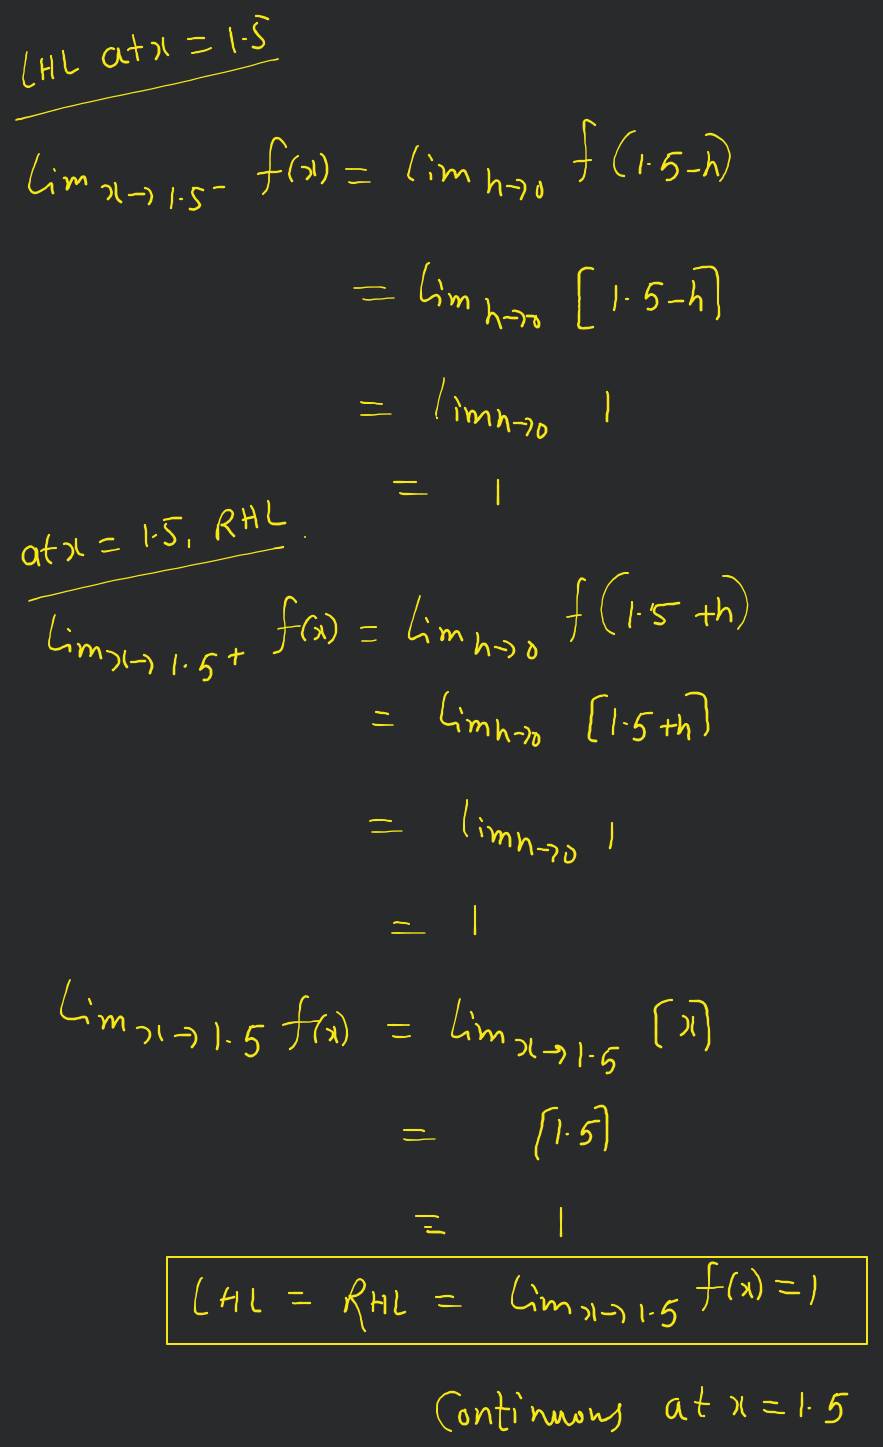 LHL at x = 1.5
Lim x→1.5⁻ f(x) = lim h→0 f(1.5-h)
= Lim h→0 [1.5-h]
= lim h→0 1
= 1
at x = 1.5, RHL
Lim x→1.5+ f(x) = Lim h→0 f(1.5+h)
= Lim h→0 [1.5+h]
= lim h→0 1
= 1
Lim x→1.5 f(x) = Lim x→1.5 [x]
= [1.5]
= 1
LHL = RHL = Lim x→1.5 f(x) = 1
Continuous at x = 1.5